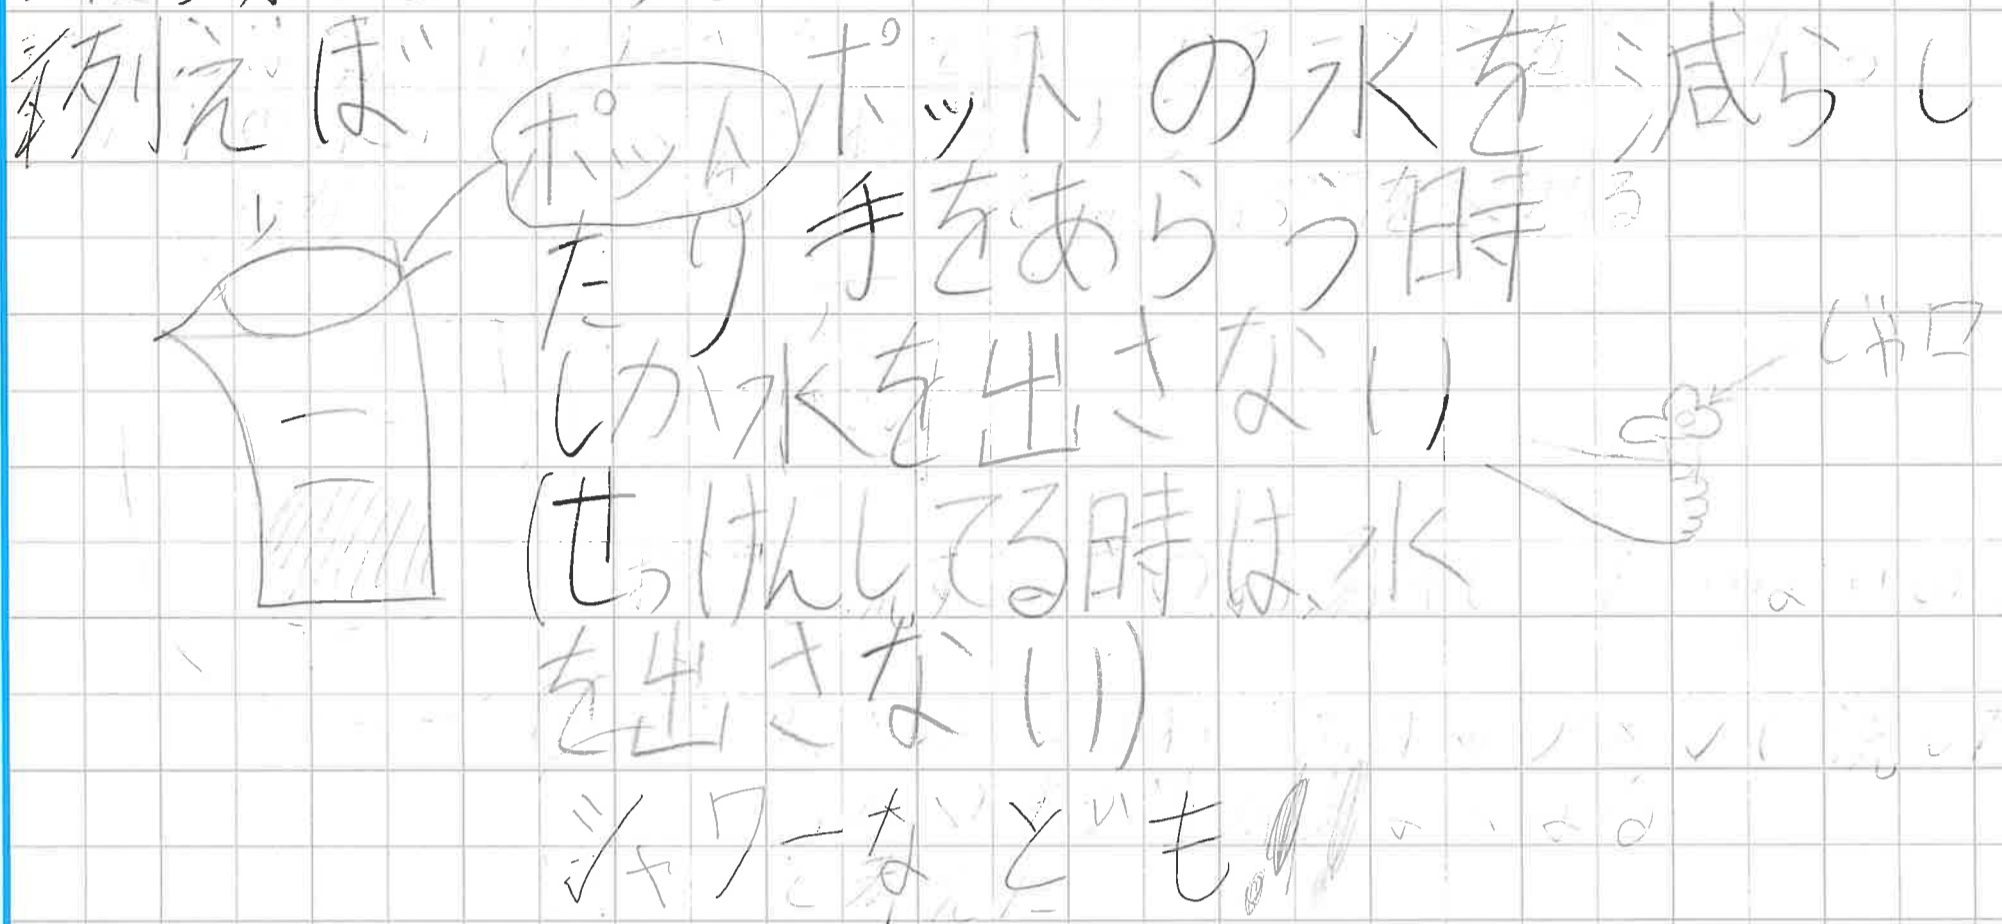 例えば ポットの水を減らし
ポット
たり手をあらう時
しか水を出さない
じゃ口
(せっけんしてる時は、水
を出さない)
シャワーなども!